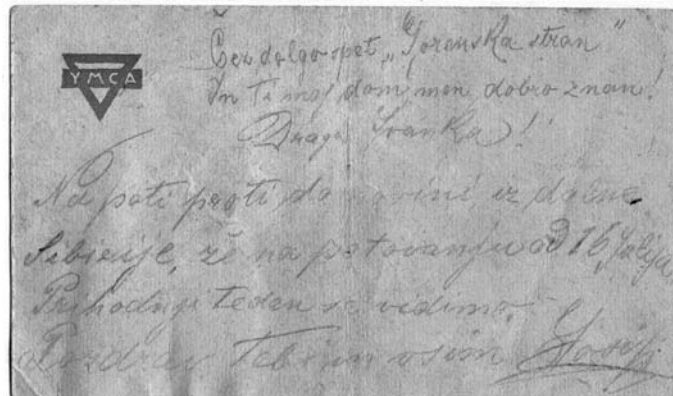 YMCA
Čez dolgo spet „Gorenska stran"
In ti moj dom men dobro znan!
Draga Ivanka!
Na poti proti domovini iz daljne
Sibirije, že na potovanju od 16 Julija
Prihodnji teden se vidimo.
Pozdrav Tebi in vsim